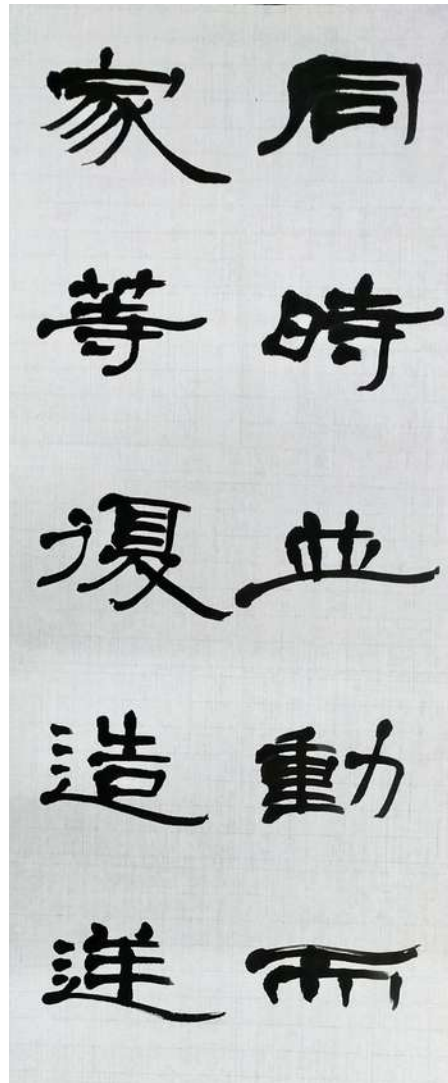 同時並動而
家等復造逆